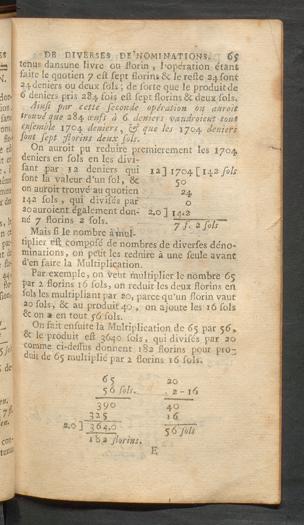 DE DIVERSES DE'NOMINATIONS. 65
tenus dans une livre ou florin, l'opération étant
faite le quotien 7 est sept florins & le reste 24 sont
24 deniers ou deux sols; de sorte que le produit de
6 deniers pris 284 fois est sept florins & deux sols.
Ainsi par cette seconde opération on auroit
trouvé que 284 œufs à 6 deniers vaudroient tout
ensemble 1704 deniers, & que les 1704 deniers
sont sept florins deux sols.
On auroit pu reduire premierement les 1704
deniers en sols en les divi-
sant par 12 deniers qui
font la valeur d'un sol, &
on auroit trouvé au quotien
142 sols, qui divisés par
20 auroient également don-
né 7 florins 2 sols.
12] 1704 [142 sols
50
24
0
20] 14.2
7 f. 2 sols
Mais si le nombre à mul-
tiplier est composé de nombres de diverses déno-
minations, on peut les redu̇ire à une seule avant
d'en faire la Multiplication.
Par exemple, on veut multiplier le nombre 65
par 2 florins 16 sols, on reduit les deux florins en
sols les multipliant par 20, parce qu'un florin vaut
20 sols, & au produit 40, on ajoute les 16 sols
& on a en tout 56 sols.
On fait ensuite la Multiplication de 65 par 56,
& le produit est 3640 sols, qui divisés par 20
comme ci-dessus donnent 182 florins pour pro-
duit de 65 multiplié par 2 florins 16 sols.
65 20
56 sols. . 2-16
390 40
325 16
20] 364.0 56 sols
182 florins.
E